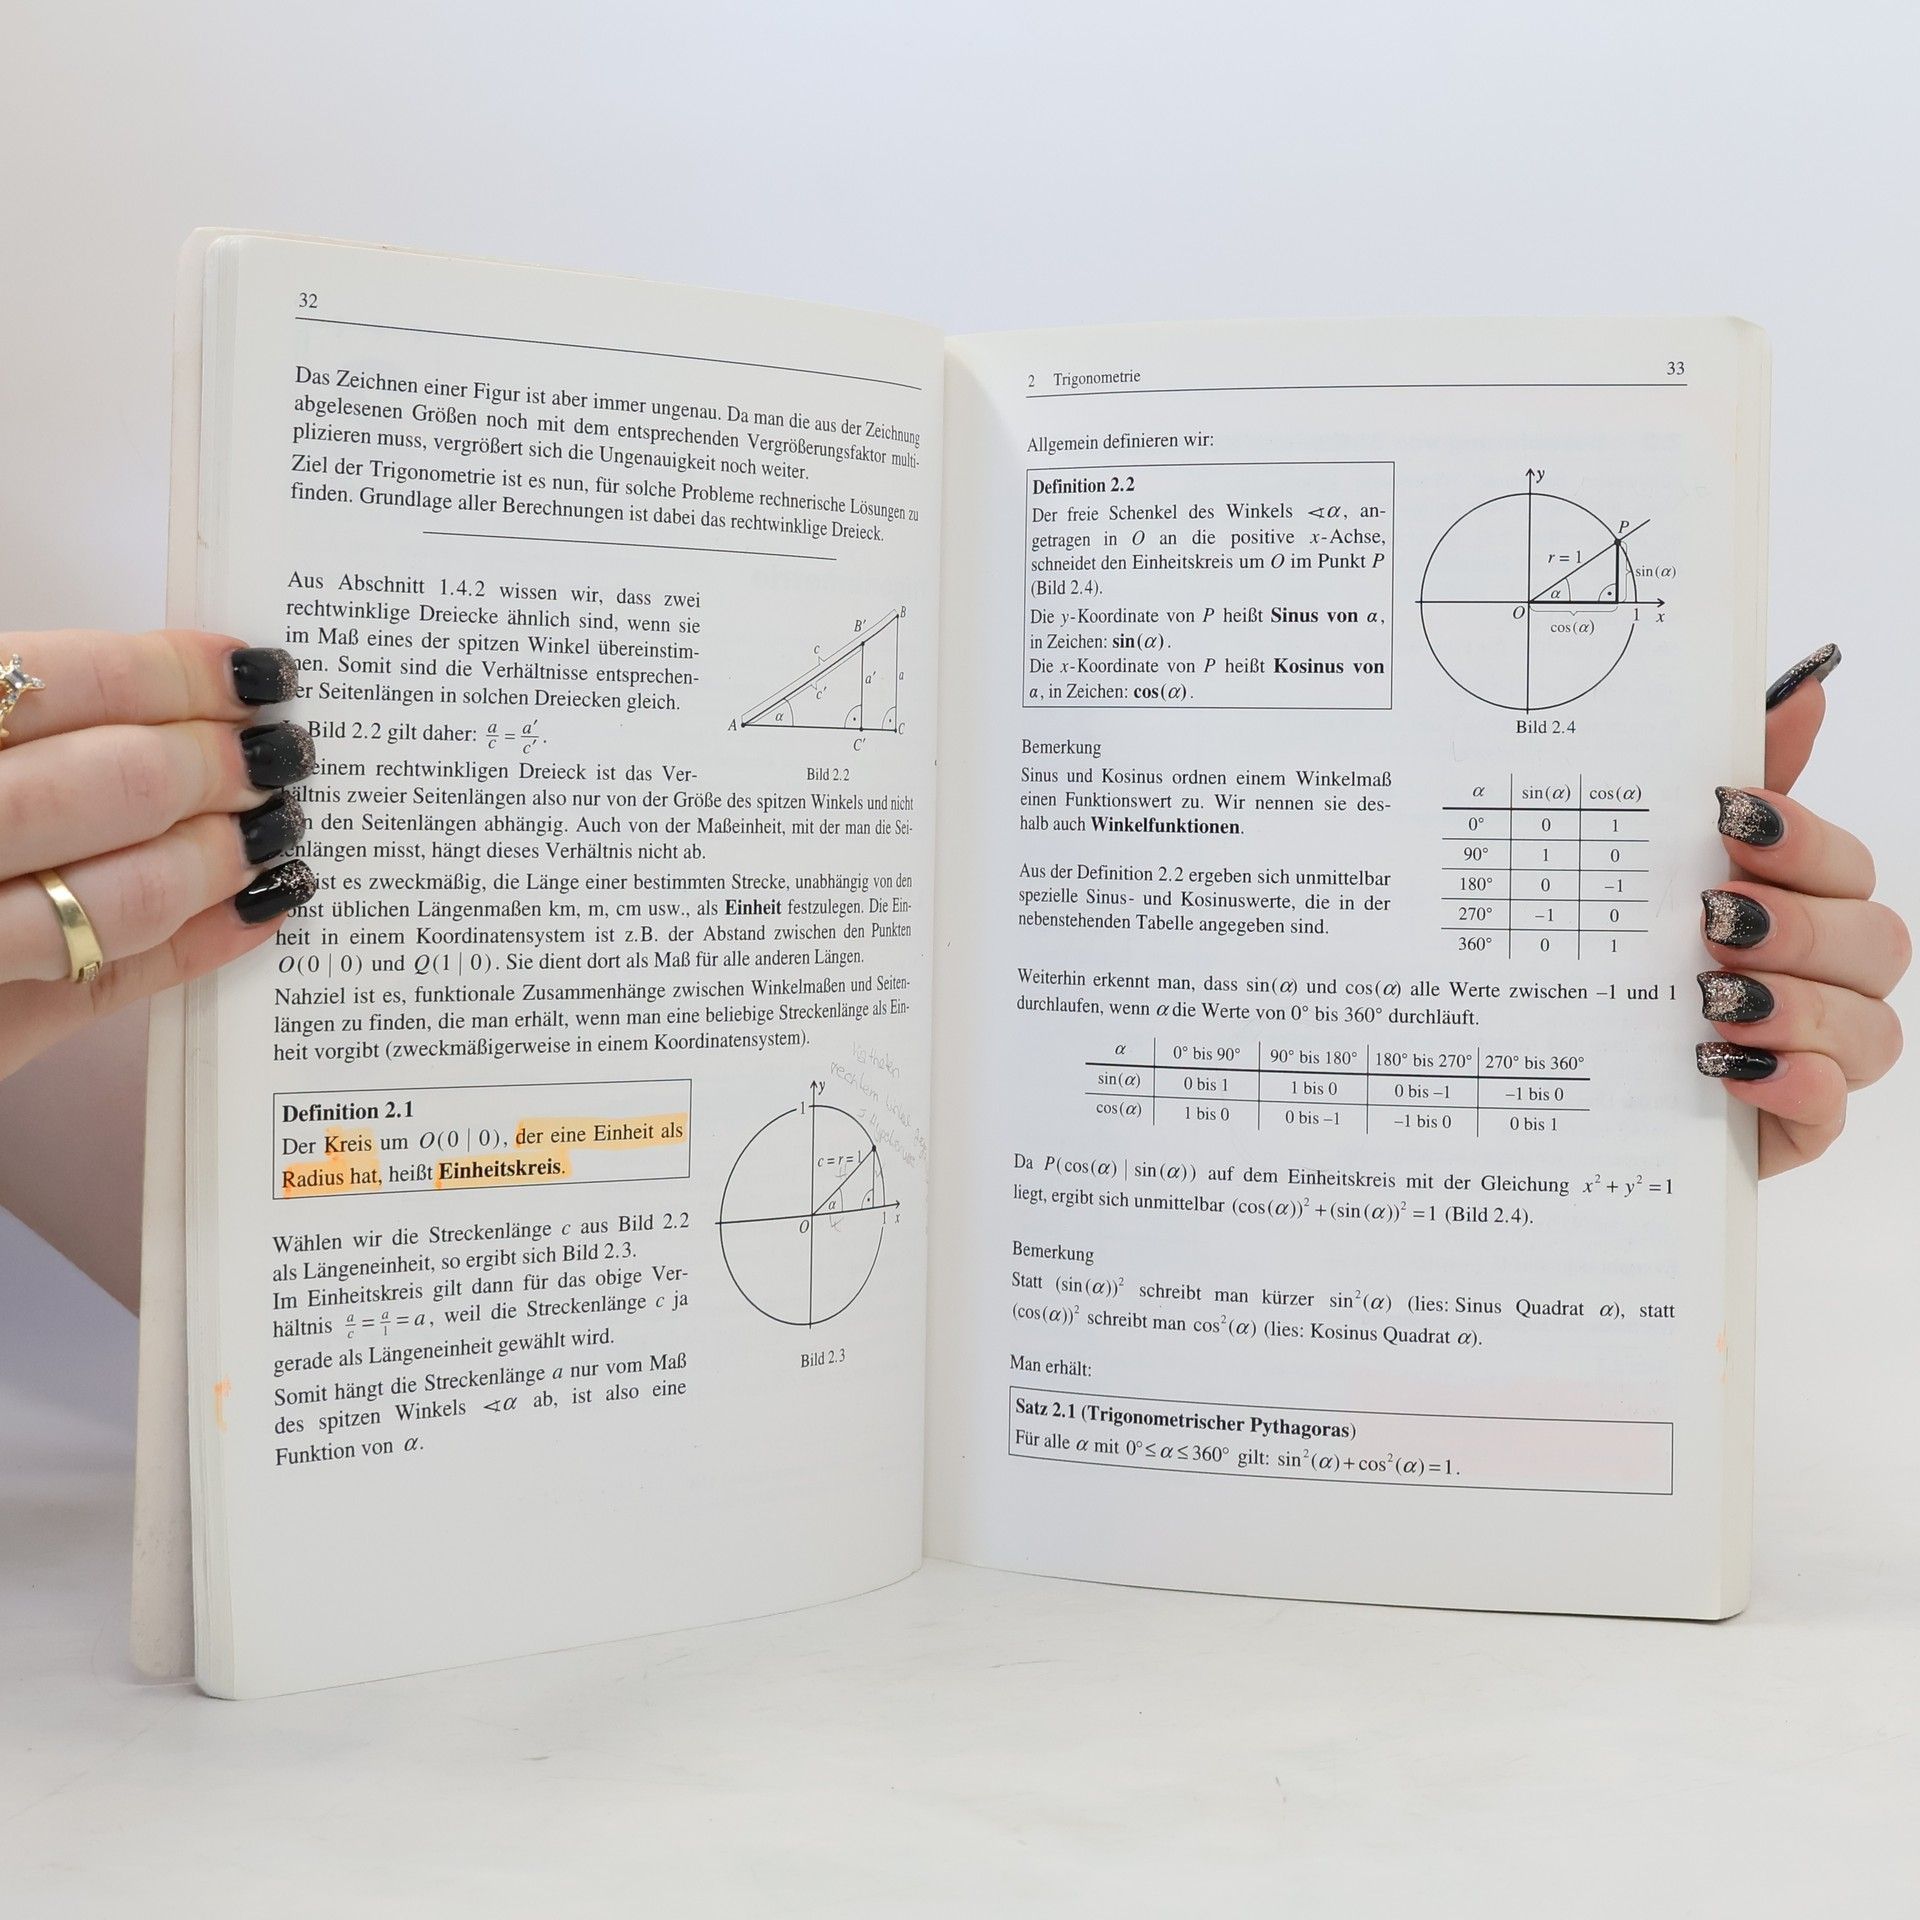 32
Das Zeichnen einer Figur ist aber immer ungenau. Da man die aus der Zeichnung
abgelesenen Größen noch mit dem entsprechenden Vergrößerungsfaktor multi-
plizieren muss, vergrößert sich die Ungenauigkeit noch weiter.
Ziel der Trigonometrie ist es nun, für solche Probleme rechnerische Lösungen zu
finden. Grundlage aller Berechnungen ist dabei das rechtwinklige Dreieck.
Aus Abschnitt 1.4.2 wissen wir, dass zwei
rechtwinklige Dreiecke ähnlich sind, wenn sie
im Maß eines der spitzen Winkel übereinstim-
men. Somit sind die Verhältnisse entsprechen-
er Seitenlängen in solchen Dreiecken gleich.
Bild 2.2 gilt daher: a/c = a'/c'.
A B' B c c' a' a α C' C
Bild 2.2
einem rechtwinkligen Dreieck ist das Ver-
hältnis zweier Seitenlängen also nur von der Größe des spitzen Winkels und nicht
n den Seitenlängen abhängig. Auch von der Maßeinheit, mit der man die Sei-
enlängen misst, hängt dieses Verhältnis nicht ab.
ist es zweckmäßig, die Länge einer bestimmten Strecke, unabhängig von den
onst üblichen Längenmaßen km, m, cm usw., als Einheit festzulegen. Die Ein-
heit in einem Koordinatensystem ist z.B. der Abstand zwischen den Punkten
O(0 | 0) und Q(1 | 0). Sie dient dort als Maß für alle anderen Längen.
Nahziel ist es, funktionale Zusammenhänge zwischen Winkelmaßen und Seiten-
längen zu finden, die man erhält, wenn man eine beliebige Streckenlänge als Ein-
heit vorgibt (zweckmäßigerweise in einem Koordinatensystem).
Definition 2.1
Der Kreis um O(0 | 0), der eine Einheit als
Radius hat, heißt Einheitskreis.
y 1 c=r=1 α O 1 x
Bild 2.3
Wählen wir die Streckenlänge c aus Bild 2.2
als Längeneinheit, so ergibt sich Bild 2.3.
Im Einheitskreis gilt dann für das obige Ver-
hältnis a/c = a/1 = a, weil die Streckenlänge c ja
gerade als Längeneinheit gewählt wird.
Somit hängt die Streckenlänge a nur vom Maß
des spitzen Winkels ∢α ab, ist also eine
Funktion von α.
2 Trigonometrie 33
Allgemein definieren wir:
Definition 2.2
Der freie Schenkel des Winkels ∢α, an-
getragen in O an die positive x-Achse,
schneidet den Einheitskreis um O im Punkt P
(Bild 2.4).
Die y-Koordinate von P heißt Sinus von α,
in Zeichen: sin(α).
Die x-Koordinate von P heißt Kosinus von
α, in Zeichen: cos(α).
y P r = 1 sin(α) α O 1 x cos(α)
Bild 2.4
Bemerkung
Sinus und Kosinus ordnen einem Winkelmaß
einen Funktionswert zu. Wir nennen sie des-
halb auch Winkelfunktionen.
Aus der Definition 2.2 ergeben sich unmittelbar
spezielle Sinus- und Kosinuswerte, die in der
nebenstehenden Tabelle angegeben sind.
α sin(α) cos(α)
0° 0 1
90° 1 0
180° 0 −1
270° −1 0
360° 0 1
Weiterhin erkennt man, dass sin(α) und cos(α) alle Werte zwischen −1 und 1
durchlaufen, wenn α die Werte von 0° bis 360° durchläuft.
α 0° bis 90° 90° bis 180° 180° bis 270° 270° bis 360°
sin(α) 0 bis 1 1 bis 0 0 bis −1 −1 bis 0
cos(α) 1 bis 0 0 bis −1 −1 bis 0 0 bis 1
Da P(cos(α) | sin(α)) auf dem Einheitskreis mit der Gleichung x² + y² = 1
liegt, ergibt sich unmittelbar (cos(α))² + (sin(α))² = 1 (Bild 2.4).
Bemerkung
Statt (sin(α))² schreibt man kürzer sin²(α) (lies: Sinus Quadrat α), statt
(cos(α))² schreibt man cos²(α) (lies: Kosinus Quadrat α).
Man erhält:
Satz 2.1 (Trigonometrischer Pythagoras)
Für alle α mit 0° ≤ α ≤ 360° gilt: sin²(α) + cos²(α) = 1.